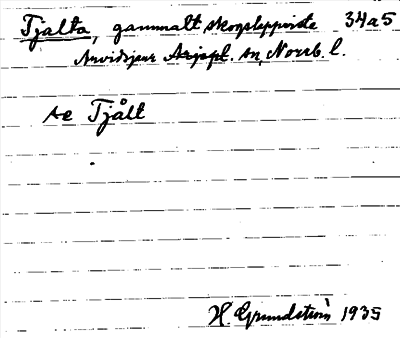 Tjalta, gammalt skogslappviste 34a5
Arvidsjaur Arjepl. sn, Norrb. l.
se Tjålt
H. Grundström 1935